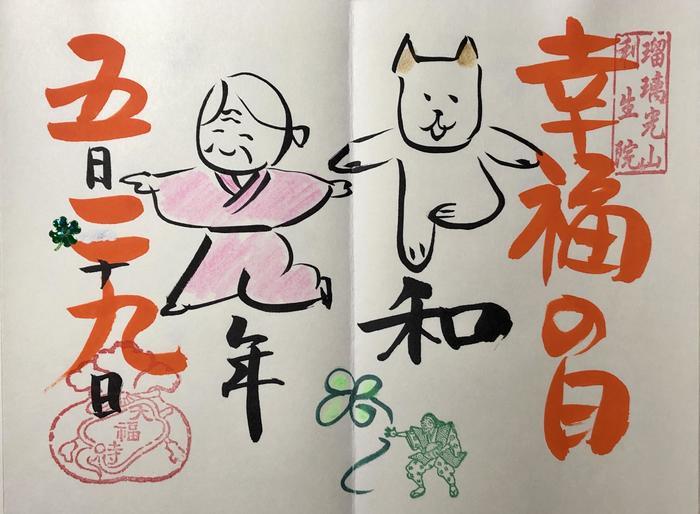 瑠璃光山
利生院
幸福の日
和
年
五日二十九日
福